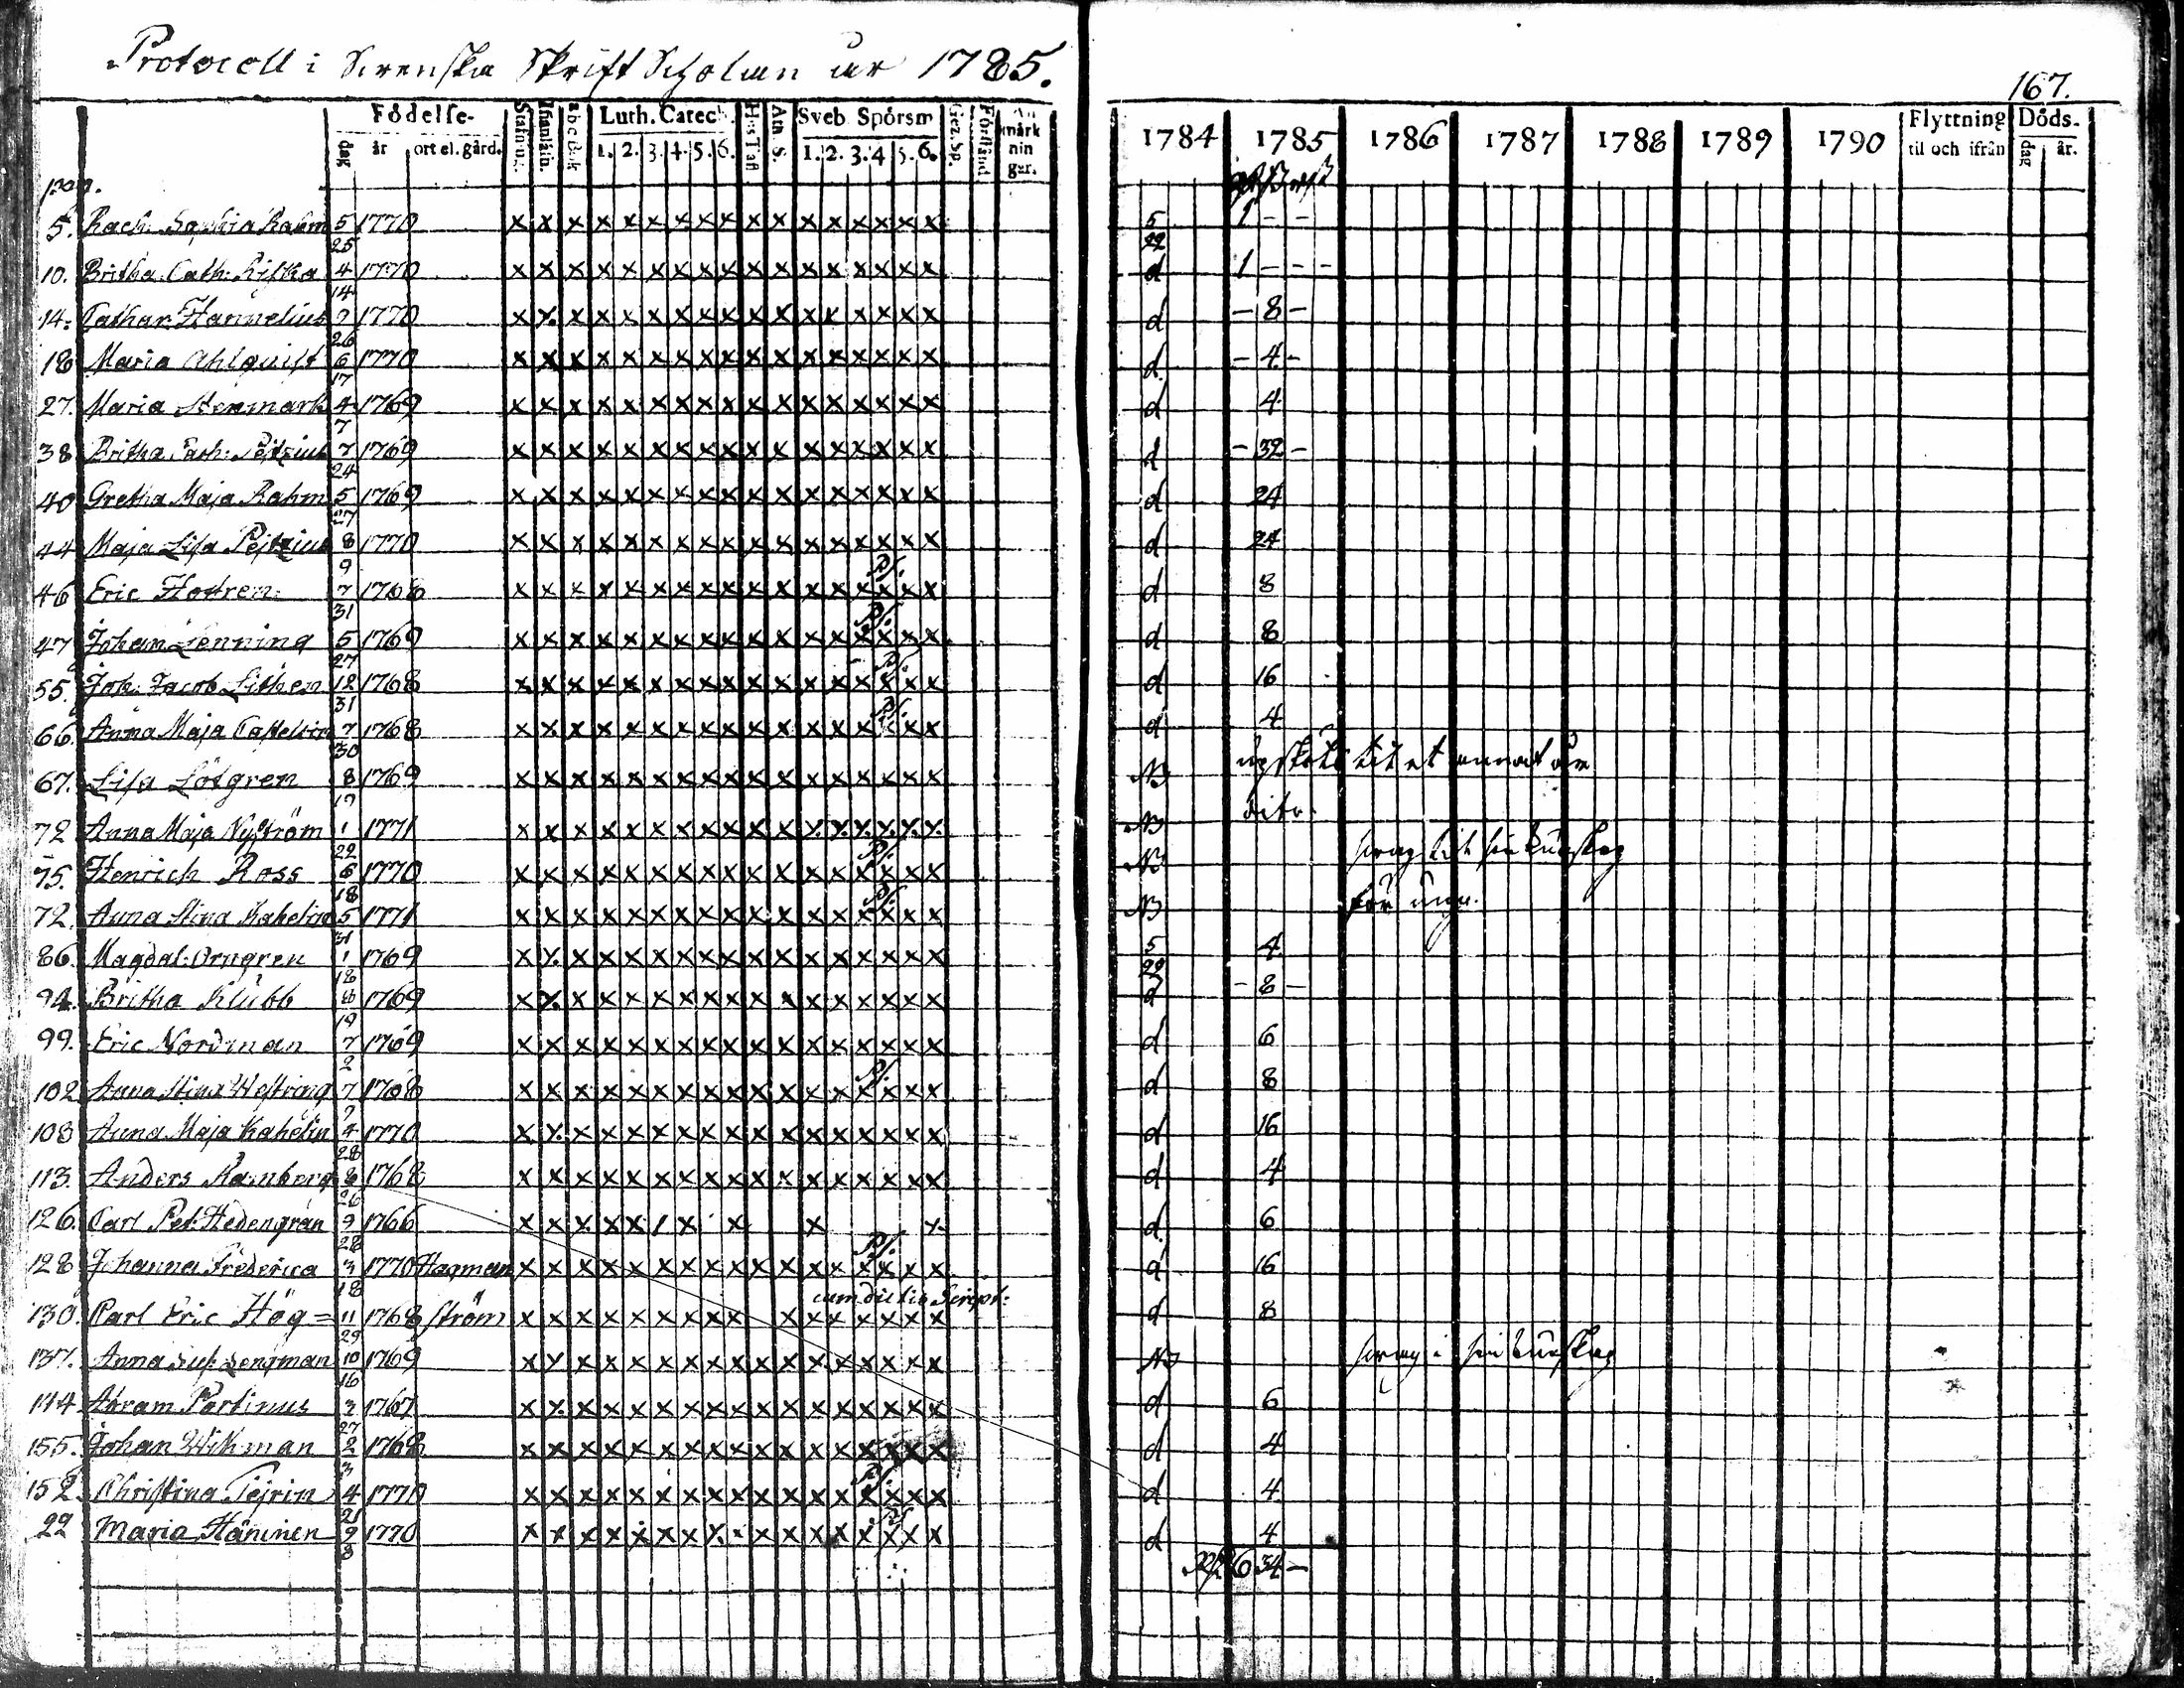 Protocoll i Svenska Skrift Scholan åar 1785.
167.
Födelse- Stafning. Luth. Catech. Hus Tafl Ath. S. Sveb. Spörsm Förstånd An märk nin gar. 1784 1785 1786 1787 1788 1789 1790 Flyttning Döds-
dag år ort el. gård. 1. 2. 3. 4. 5. 6. 1. 2. 3. 4 5. 6. til och ifrån dag år.
pag.
5. Rach. Sophia Rahm 5 1770 x x x x x x x x x x x x x x x x x 5 1 - -
25 22
10. Britha Cath. 4 1770 x x x x x x x x x x x x x x x x x d 1 - - -
14
14. Cathar. Hannelius 7 1770 x x x x x x x x x x x x x x x x x d - 8 -
26
18 Maria Ahlquist 6 1770 x x x x x x x x x x x x x x x x x d - 4 -
17
27. Maria Stenmark 4 1769 x x x x x x x x x x x x x x x x x d 4
7
38 Britha Cath. Peitzius 7 1769 x x x x x x x x x x x x x x x x x d - 32 -
24
40 Gretha Maja Rahm 5 1769 x x x x x x x x x x x x x x x x x d 24
27
44 Maja Lisa Peitzius 8 1770 x x x x x x x x x x x x x x x x x d 24
9 Ps.
46 Eric 7 1768 x x x x x x x x x x x x x x x x x d 8
31 Ps.
47 Johan Lenning 5 1769 x x x x x x x x x x x x x x x x x d 8
27 Ps.
55. Joh. Jacob Lithen 12 1768 x x x x x x x x x x x x x x x x x d 16
31 Ps.
66. Anna Maja 7 1768 x x x x x x x x x x x x x x x x d 4
30
67. Lisa Löfgren 8 1769 x x x x x x x x x x x x x x x x x NB upskots til et annat år
19
72 Anna Maja Nyström 1 1771 x x x x x x x x x x x x x x x x x NB dito.
22 Ps.
75. Henrich Ross 6 1770 x x x x x x x x x x x x x x x x x NB svag til sin kunskap
18 Ps.
72. Anna Stina Kahelin 5 1771 x x x x x x x x x x x x x x x x x NB för ung.
31
86. Magdal. Örngren 1 1769 x x x x x x x x x x x x x x x x x 5 4
18 29
94. Britha Klubb 8 1769 x x x x x x x x x x x x x x x x d - 8 -
19
99. Eric Nordman 7 1769 x x x x x x x x x x x x x x x x x d 6
2 Ps.
102 Anna Stina Westring 7 1768 x x x x x x x x x x x x x x x x x d 8
7
108 Anna Maja Kahelin 4 1770 x x x x x x x x x x x x x x x x x d 16
28
113. Anders Ramberg 8 1768 x x x x x x x x x x x x x x x x x d 4
26
126. Carl Pet. Hedengran 9 1766 x x x x x / x x x x d 6
28 Ps.
128 Johanna Frederica 3 1770 Hagman x x x x x x x x x x x x x x x x x d 16
18 cum dictis Script:
130. Carl Eric Hög= 11 1768 ström x x x x x x x x x x x x x x x x d 8
29
137. Anna Lengman 10 1769 x x x x x x x x x x x x x x x x x NB svag i sin kunskap
16
144 Abram Portinus 3 1767 x x x x x x x x x x x x x x x x x d 6
27
155. Johan Wikman 2 1768 x x x x x x x x x x x x x x x x x d 4
3 Ps.
152 Christina 4 1770 x x x x x x x x x x x x x x x x x d 4
21
22 Maria Häninen 9 1770 x x x x x x x x x x x x x x x x x d 4
8
6 34 -